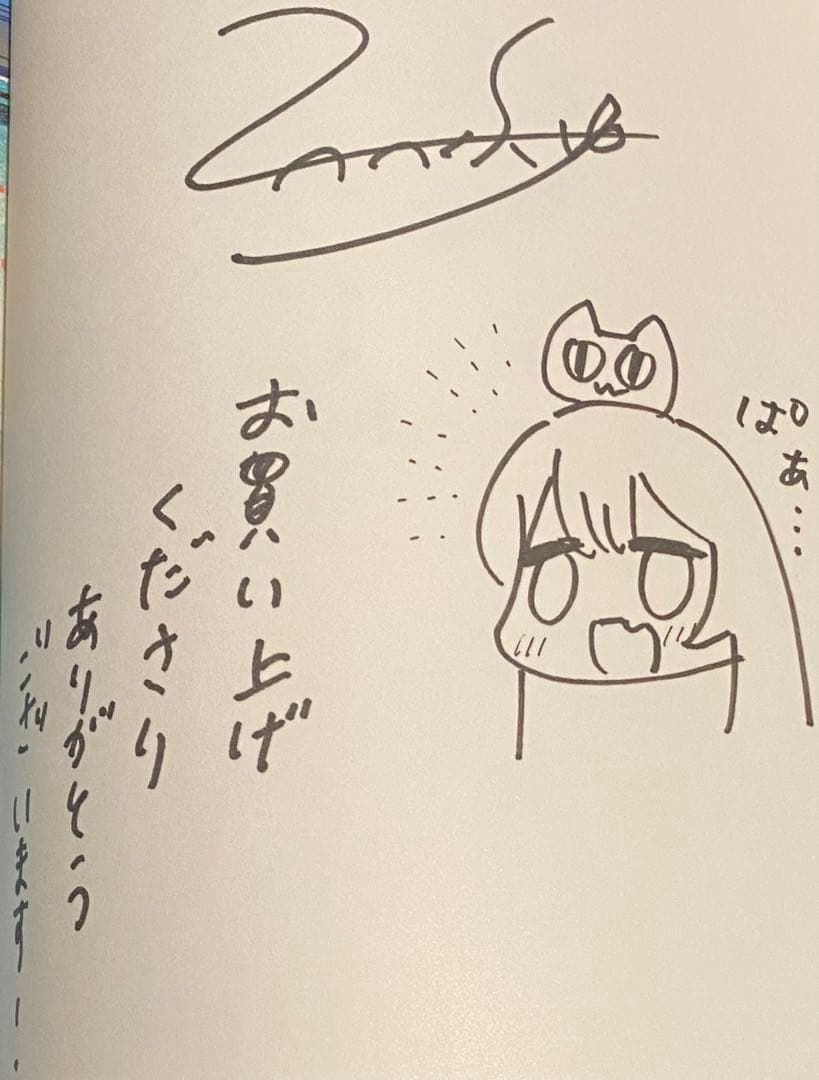 お買い上げ
くださり
ありがとう
ございますー.
ぱぁ…